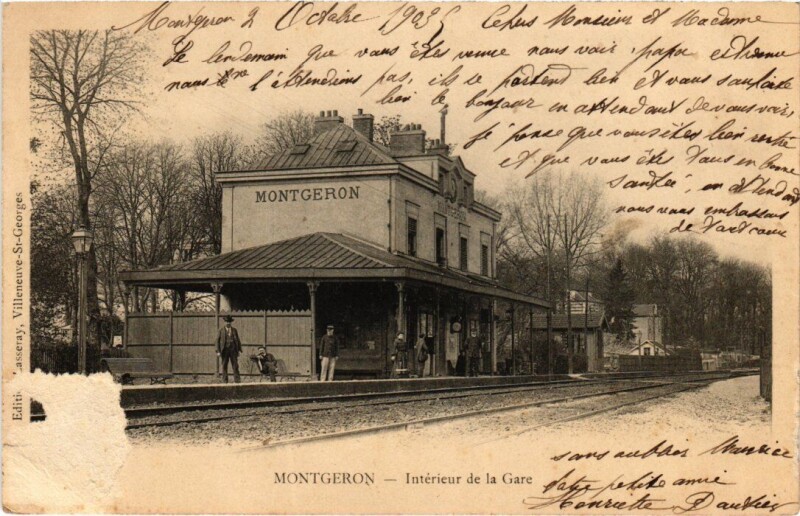 Montgeron 2 Octobre 1903 Chers Monsieur et Madame
Le lendemain que vous êtes venue nous voir, papa et
nous ne l'attendions pas, ils se portent bien et vous souhaite
bien le bonjour en attendant de vous voir,
je pense que vous êtes bien rentré
et que vous êtes tous en bonne
santée, en attendant
nous vous embrassons
de tout coeur
sans oublier Maurice
Votre petite amie
Henriette
MONTGERON
Villeneuve-St-Georges
MONTGERON — Intérieur de la Gare